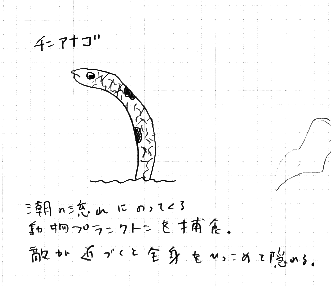 チンアナゴ
潮の流れにのってくる
動物プランクトンを捕食。
敵が近づくと全身をひっこめて隠れる。